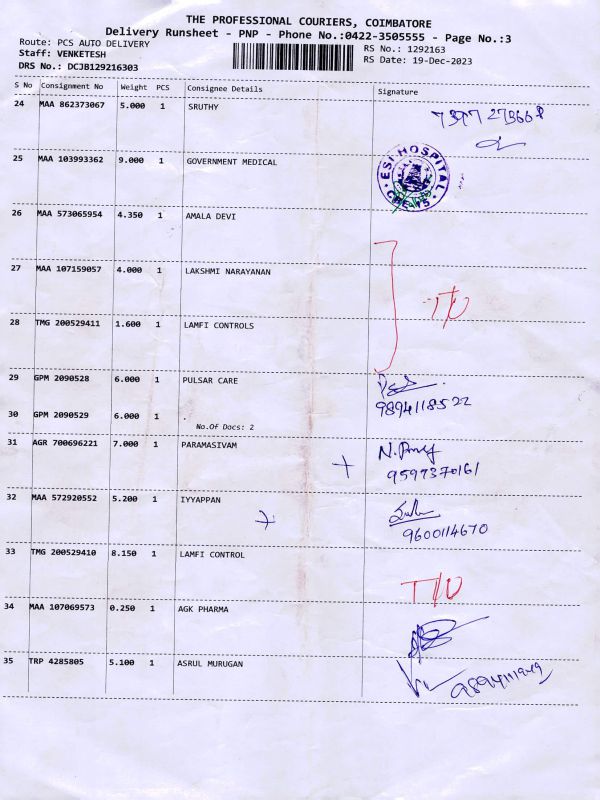 THE PROFESSIONAL COURIERS, COIMBATORE
Delivery Runsheet - PNP - Phone No.:0422-3505555 - Page No.:3
Route: PCS AUTO DELIVERY
RS No.: 1292163
Staff: VENKETESH
RS Date: 19-Dec-2023
DRS No.: DCJB129216303
S No Consignment No Weight PCS Consignee Details Signature
24 MAA 862373067 5.000 1 SRUTHY
7397 273668
25 MAA 103993362 9.000 1 GOVERNMENT MEDICAL
ESI HOSPITAL
26 MAA 573065954 4.350 1 AMALA DEVI
27 MAA 107159057 4.000 1 LAKSHMI NARAYANAN
T/U
28 TMG 200529411 1.600 1 LAMFI CONTROLS
29 GPM 2090528 6.000 1 PULSAR CARE
9894118522
30 GPM 2090529 6.000 1
No.Of Docs: 2
31 AGR 700696221 7.000 1 PARAMASIVAM
9597370161
32 MAA 572920552 5.200 1 IYYAPPAN
9600114670
33 TMG 200529410 8.150 1 LAMFI CONTROL
T/U
34 MAA 107069573 0.250 1 AGK PHARMA
35 TRP 4285805 5.100 1 ASRUL MURUGAN